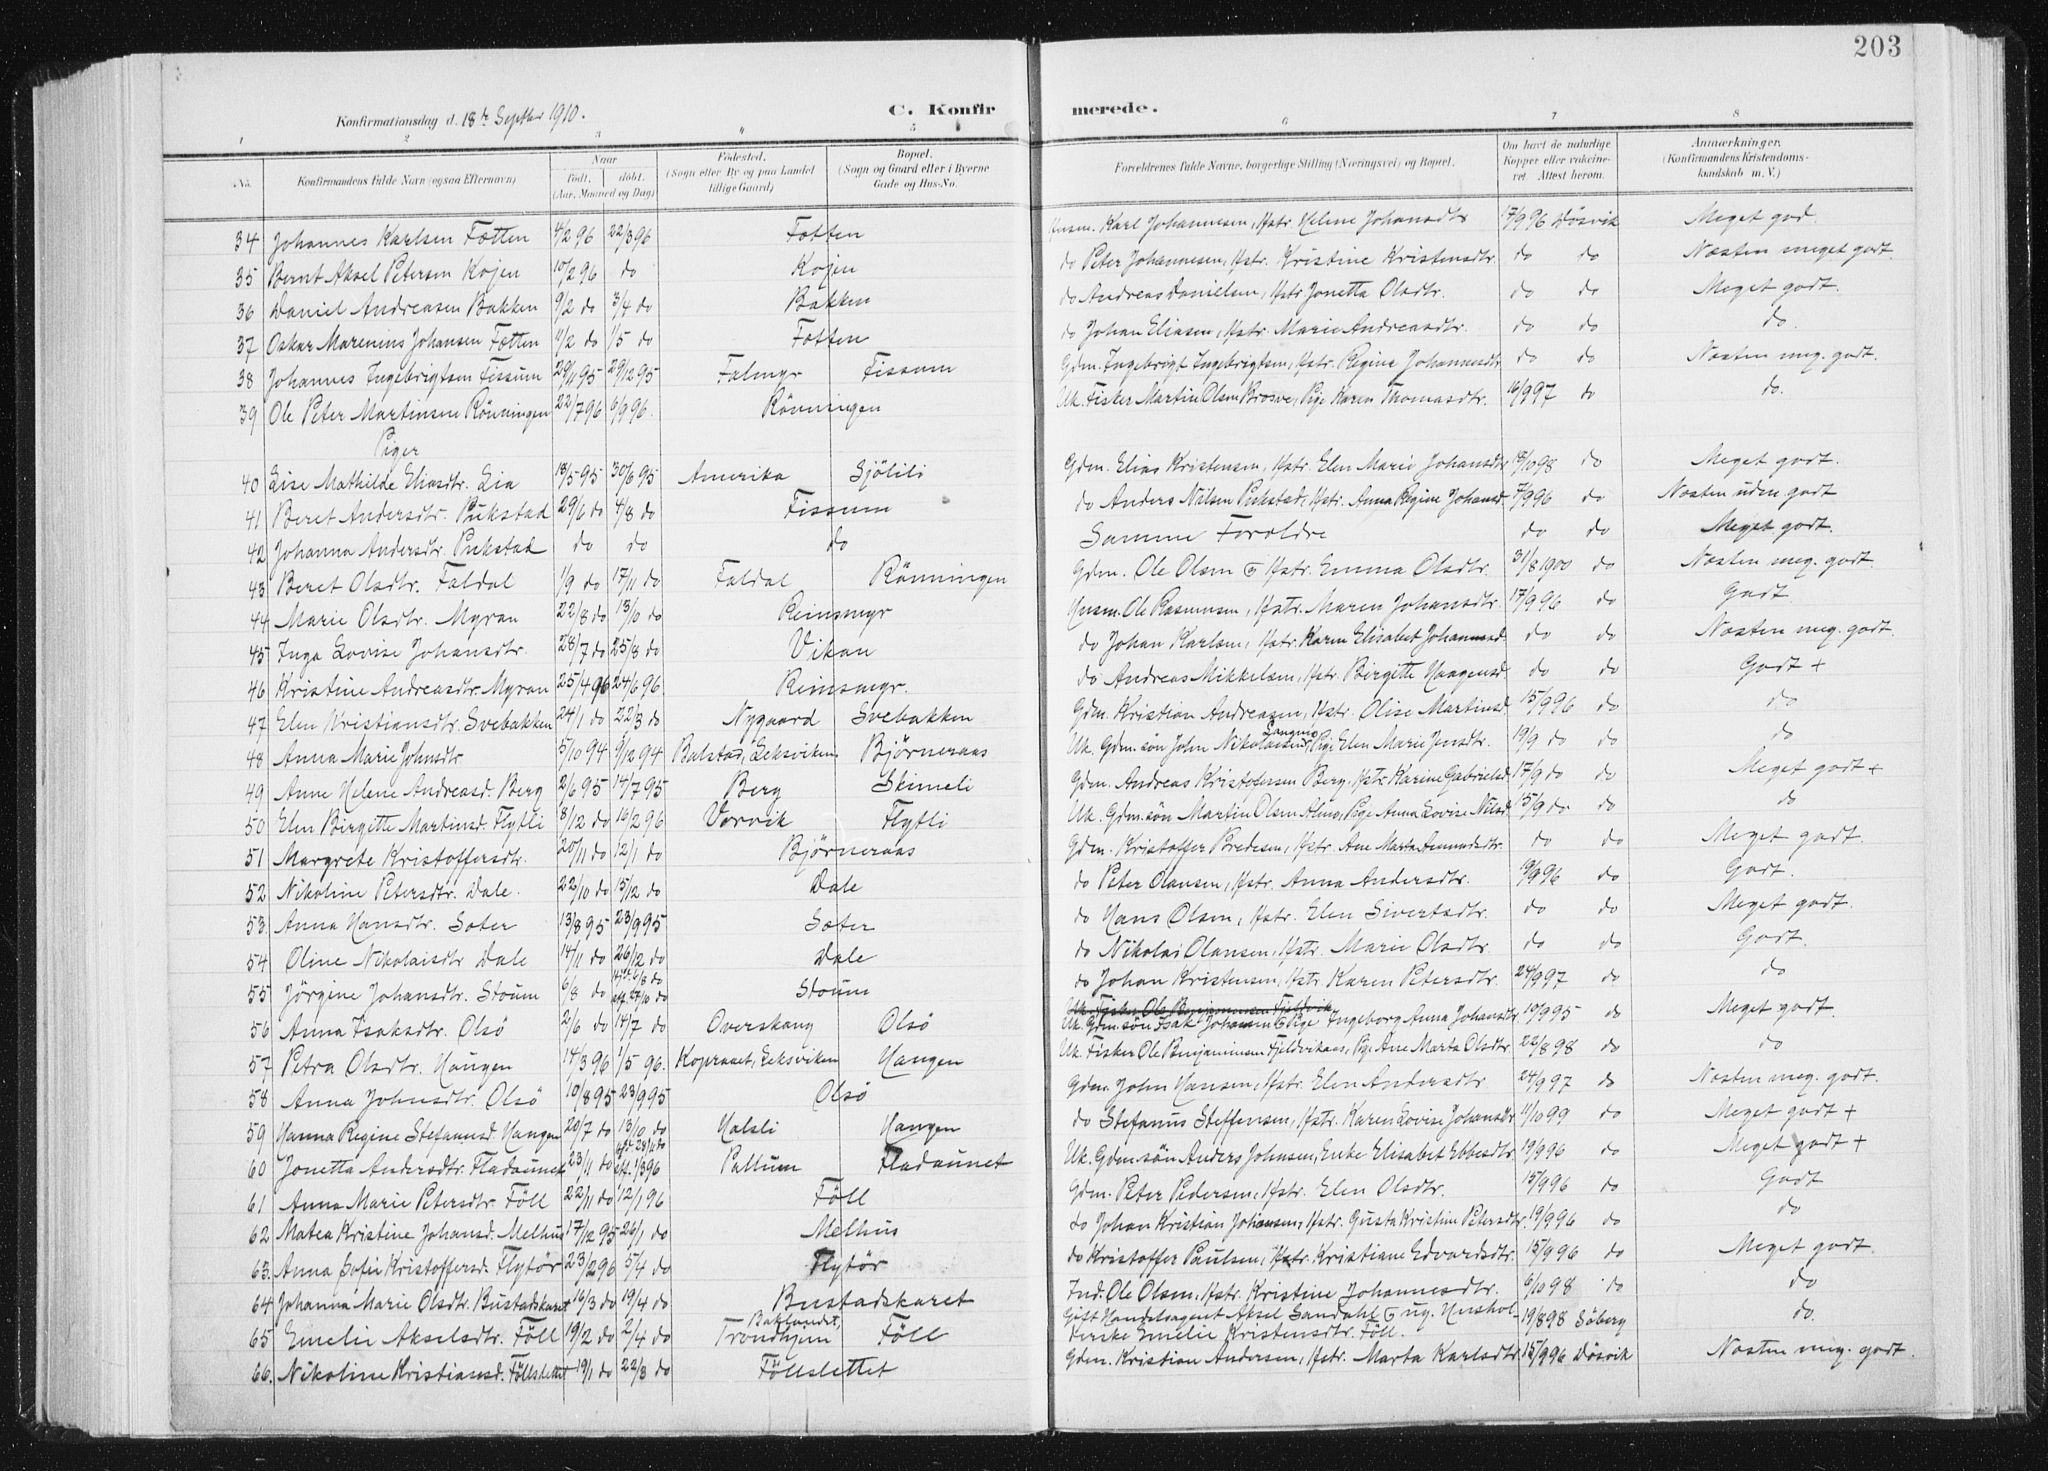 203
Konfirmationsdag d. 18de Septbr 1910.
C. Konfirmerede.
1 2 3 " 5 6 7 8
No. Konfirmandens fulde Navn (ogsaa Efternavn) Naar født, døbt. (Aar, Maaned og Dag) Fødested. (Sogn eller By og paa Landet tillige Gaard) Bopæl. (Sogn og Gaard eller i Byerne Gade og Hus-No. Forældrenes fulde Navne, borgerlige Stilling (Næringsvei) og Bopæl. Om havt de naturlige Kopper eller vakcineret Attest herom. Anmærkninger. (Konfirmandens Kristendomskundskab m. V.)
34 Johannes Karlsen Fætten 4/2 96 22/3 96 Fætten Husm. Karl Johannesen, Hstr. Helene Johansdtr 17/9 96 Dösvik Meget god.
35 Bernt Aksel Petersen Kojen 10/2 96 do Kojen do Peter Johannesen, Hstr. Kristine Kristensdtr. do do Næsten meget godt.
36 Daniel Andreasen Bakken 9/2 do 3/4 do Bakken do Andreas Danielsen, Hstr. Jonetta Olsdtr. do do Meget godt.
37 Oskar Marenius Johansen Fætten 11/2 do 1/5 do Fætten do Johan Eliasen, Hstr. Marie Andreasdtr. do do do.
38 Johannes Ingebrigtsen Fissum 29/11 95 29/12 95 Falmyr Fissum Gdm. Ingebrigt Ingebrigtsen, Hstr. Regine Johannesdtr do do Næsten meg. godt.
39 Ole Peter Martinsen Rönningen 22/7 96 6/9 96 Rönningen Uk. Fisker Martin Olsen Brosve, Pige Karen Thomasdtr. 16/9 97 do do.
Piger
40 Lise Mathilde Eliasdtr. Lia 18/5 95 30/6 95 Amerika Sjölili Gdm. Elias Kristensen, Hstr. Elen Marie Johansdtr 18/10 98 do Meget godt.
41 Beret Andersdtr. Pukstad 29/6 do 4/8 do Fissum do Anders Nilsen Pukstad, Hstr. Anna Regine Johansd. 7/9 96 do Næsten uden godt
42 Johanna Andersdtr. Pukstad do do do Samme Foreldre do do Meget godt.
43 Beret Olsdtr. Faldal 1/9 do 17/11 do Faldal Rönningen Gdm. Ole Olsen G Hstr. Emma Olsdtr. 31/8 1900 do Næsten meg. godt.
44 Marie Olsdtr. Myran 22/8 do 13/10 do Reinsmyr Husm. Ole Rasmusen, Hstr. Maren Johansdtr. 17/9 96 do Godt
45 Inga Lovise Johansdtr. 28/7 do 25/8 do Vikan do Johan Karlsen, Hstr. Karen Elisabet Johannesd. do do Næsten meg. godt.
46 Kristine Andreasdtr. Myran 25/4 96 24/6 96 Reinsmyr. do Andreas Mikkelsen, Hstr. Birgitte Haagensd. do do Godt +
47 Elen Kristiansdtr. Svebakken 24/1 do 22/3 do Nygaard Svebakken Gdm. Kristian Andreasen, Hstr. Olise Martinsd 15/9 96 do do
48 Anna Marie Johnsdtr 5/10 94 9/12 94 Balstad, Leksviken Björneraas Uk. Gdm.sön John Nikolaisen Langmo, Pige Elen Marie Jensdtr. 19/9 do do do
49 Anne Helene Andreasd. Berg 2/6 95 14/7 95 Berg Skimeli Gdm. Andreas Kristofersen Berg, Hstr. Karine Gabrielsd. 17/9 do do Meget godt +
50 Elen Birgitte Martinsd. Flytli 8/12 do 16/2 96 Vorvik Flytli Uk. Gdm.sön Martin Olsen Almo, Pige Anna Lovise Nilsd. 15/9 do do do
51 Margrete Kristoffersdtr. 20/11 do 12/1 do Björneraas Gdm. Kristoffer Bredesen, Hstr. Ane Marta Amundsdtr. do do Meget godt.
52 Nikoline Petersdtr. Dale. 22/10 do 15/12 do Dale do Peter Olausen, Hstr. Anna Andersdtr. 19/9 96 do Godt.
53. Anna Hansdtr. Sæter 13/8 95 23/9 95 Sæter do Hans Olsen, Hstr. Elen Sivertsdtr. do do Meget godt.
54 Oline Nikolaisdtr Dale 14/11 do 26/12 do Dale do Nikolai Olausen, Hstr. Marie Olsdtr. do do Godt.
55 Jörgine Johansdtr. Stoum 6/8 do 6/8 do 27/10 do Stoum do Johan Kristensen, Hstr Karen Petersdtr. 24/9 97 do do
56 Anna Isaksdtr. Olsö 2/6 do 14/7 do Overskang Olsö Uk. Fisker Ole Benjaminsen Fjeldvik Uk. Gdm.sön Isak Johansen G Pige Ingeborg Anna Johansdtr. 10/9 95 do Meget godt
57 Petra Olsdtr. Haugen 14/3 96 1/5 96. Kopraaet, Leksviken Haugen Uk. Fisker Ole Benjaminsen Fjeldvikaas, Pige Ane Marta Olsdtr. 22/8 98 do do
58 Anna Johnsdtr. Olsö 10/8 95 23/9 95 Olsö Gdm. John Hansen, Hstr. Elen Andersdtr 24/9 97 do Næsten meg. godt.
59 Hanna Regine Stefanusd. Haugen 20/7 do 13/10 do Halsli Haugen do Stefanus Steffensen, Hstr. Karen Lovise Johansdtr 11/10 99 do Meget godt +
60 Jonetta Andersdtr. Fladaunet 23/11 do 28/11 do 1/3 96 Pallum Fladaunet Uk. Gdm.sön Anders Johnsen, Enke Elisabet Ebbesdtr 19/9 96 do Meget godt +
61 Anna Marie Petersdtr. Föll 22/11 do 12/1 96 Föll Gdm. Peter Pedersen, Hstr. Elen Olsdtr. 15/9 96 do Godt
62 Matea Kristine Johansd. Melhus 17/12 95 26/1 do Melhus do Johan Kristian Johansen, Hstr. Gusta Kristine Petersdtr. 19/9 96 do do
63. Anna Sofie Kristoffersd. Flytör 23/2 96 5/4 do Flytör do Kristoffer Paulsen, Hstr. Kristiane Edvardsdtr. 15/9 96 do Meget godt.
64 Johanna Marie Olsdtr. Bustadskaret 16/3 do 19/4 do Bustadskaret Ind. Ole Olsen, Hstr. Kristine Johannesdtr. 6/10 98 do do
65 Emelie Akselsdtr. Föll 19/2 do 2/4 do Baklandet, Trondhjem Föll Gift Handelsagent Aksel Sandahl G ug. Husholderske Emelie Kristensdtr. Föll. 19/8 98 Söberg do.
66. Nikoline Kristiansd. Föllslettet 19/1 do 22/3 do Föllslettet Gdm. Kristian Andersen, Hstr. Marta Karlsdtr 15/9 96 Dösvik Næsten meg. godt.